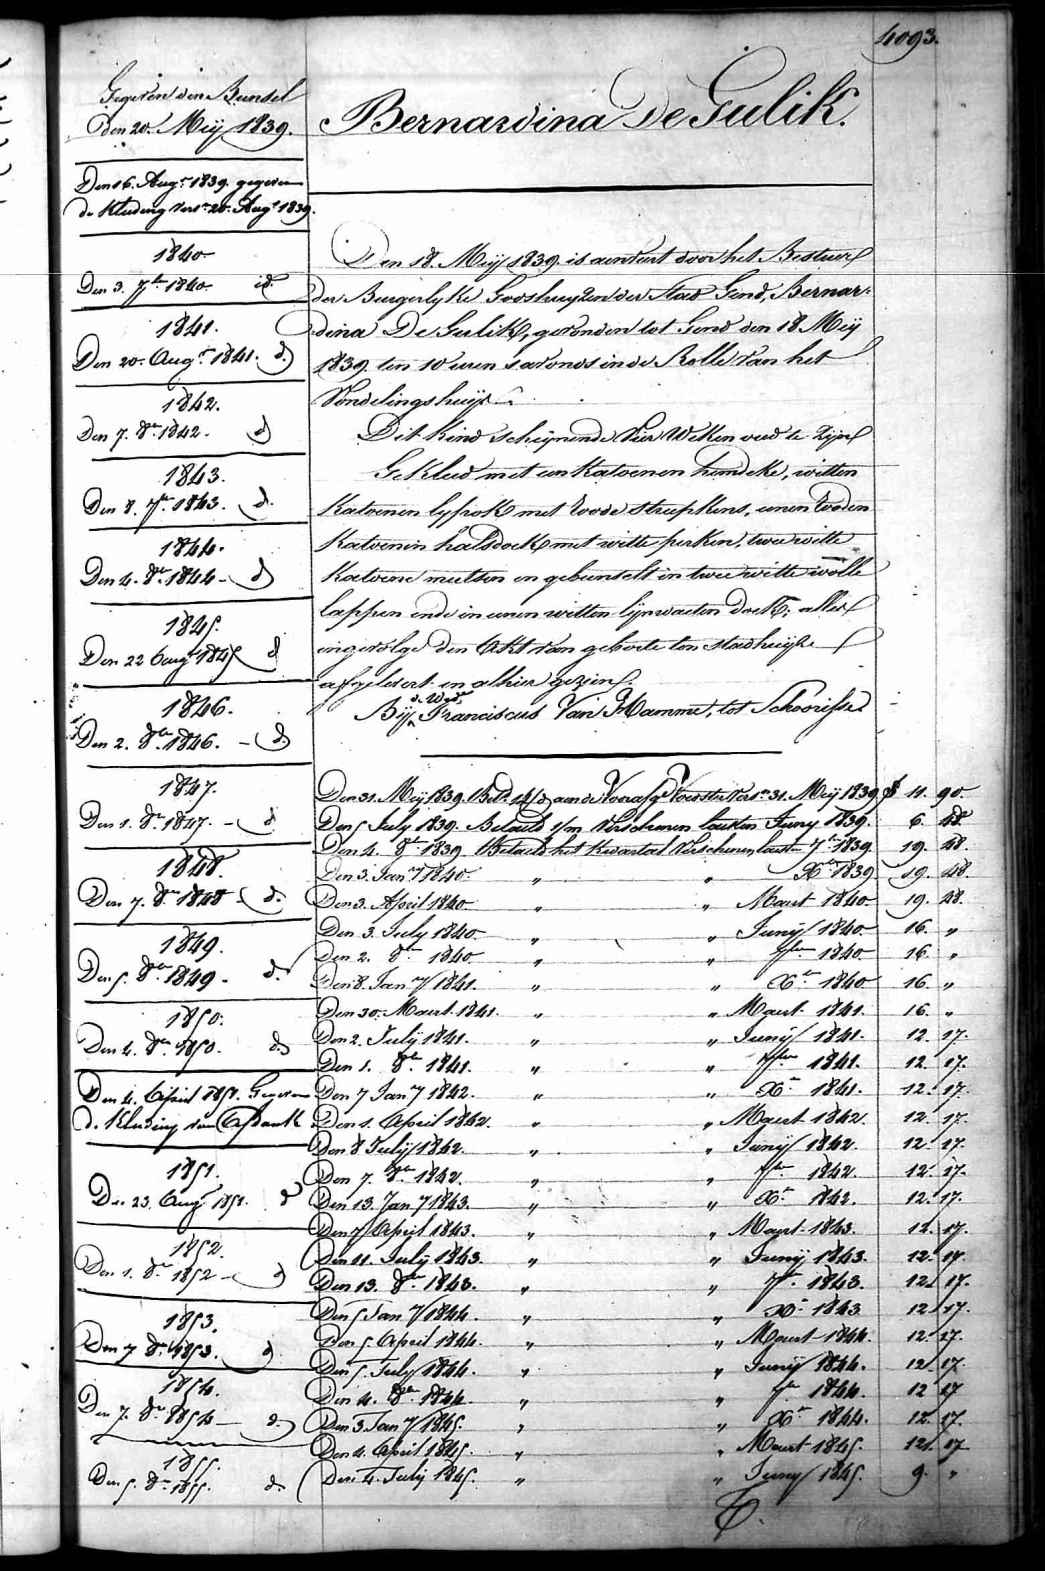 4093.
Bernardina De Gulik.
Gegeven den Bundel
den 20. Meij 1839.
Den 16. Augt. 1839. gegeven
de Kleding Verst. 20. Augt. 1839.
1840.
Den 3. 7br. 1840. id.
1841.
Den 20. Augt. 1841. d.
1842.
Den 7. 8br. 1842. d
1843.
Den 8. 7br. 1843. d.
1844.
Den 4. 8br. 1844 - d
1845.
Den 22 Augt 1845 d
1846.
Den 2. 8br. 1846. - d.
1847.
Den 1. 8br. 1847. - d.
1848.
Den 7. 8br. 1848 - d.
1849.
Den 5. 8br. 1849 - d.
1850.
Den 4. 8br. 1850. d.
Den 4. April 1851. Gegeven
de Kleding van Afdank
1851.
Den 23. Augt. 1851. d
1852.
Den 1. 8br. 1852 - d
1853.
Den 7 8br. 1853. d
1854.
Den 7. 8br. 1854 - d.
1855.
Den 5. 8br. 1855. d.
Den 18. Meij 1839. is aenveirt door het Bestuer
der Burgerlyke Godshuyzen der Stad Gend, Bernar-
dina De Gulik, gevonden tot Gend den 18. Meij
1839. ten 10 uren s'avonds in de Rolle van het
Vondelingshuijs.
Dit Kind scheijnende Vier Weken oud te Zijn
Gekleed met een Katoenen hemdeke, witten
Katoenen lyfrok met roode streepkens, eenen rooden
Katoenen halsdoek met witte perken, twee witte
Katoene mutsen en gebunselt in twee witte wolle
lappen ende in eenen witten lijnwaeten doek; alles
ingevolge den Akt van geboorte ten stadhuijse
afgelevert en alhier gezien.
de Wede
Bij Franciscus Van Damme, tot Schoorisse
Den 31. Meij 1839. aan de Verst. 31. Meij 1839 11. 90
Den 5 July 1839. Betaeld Verschenen lausten Junij 1839. 6. 48
Den 4. 8br. 1839 Betaeld het Kwartael Verschenen laust 7br. 1839 19. 28.
Den 3. Jany 1840. „ „ Xbr. 1839 19. 28.
Den 3. April 1840. „ „ Maert 1840 19. 28.
Den 3. July 1840. „ „ Junij 1840 16. „
Den 2. 8br. 1840 „ „ 7br. 1840 16. „
Den 8. Jany 1841. „ „ Xbr. 1840 16. „
Den 30. Maert 1841. „ „ Maert 1841. 16. „
Den 2. Julij 1841. „ „ Junij 1841. 12. 17.
Den 1. 8br. 1841. „ „ 7br. 1841. 12. 17.
Den 7 Jany 1842. „ „ Xbr. 1841. 12. 17.
Den 1. April 1842. „ „ Maert 1842. 12. 17.
Den 8 Julij 1842. „ „ Junij 1842. 12. 17.
Den 7. 8br. 1842. „ „ 7br. 1842. 12. 17.
Den 13. Jany 1843. „ „ Xbr. 1842. 12. 17.
Den 7 April 1843. „ „ Maert 1843. 12. 17.
Den 11. Julij 1843. „ „ Junij 1843. 12. 17.
Den 13. 8br. 1843. „ „ 7br. 1843. 12. 17.
Den 5 Jany 1844. „ „ Xbr. 1843 12. 17.
Den 5. April 1844. „ „ Maert 1844. 12. 17.
Den 5. July 1844. „ „ Junij 1844. 12 17.
Den 4. 8br. 1844. „ „ 7br. 1844. 12 17
Den 3 Jany 1845. „ „ Xbr. 1844. 12. 17.
Den 4. April 1845. „ „ Maert 1845. 12. 17
Den 4. July 1845. „ „ Juny 1845. 9. „